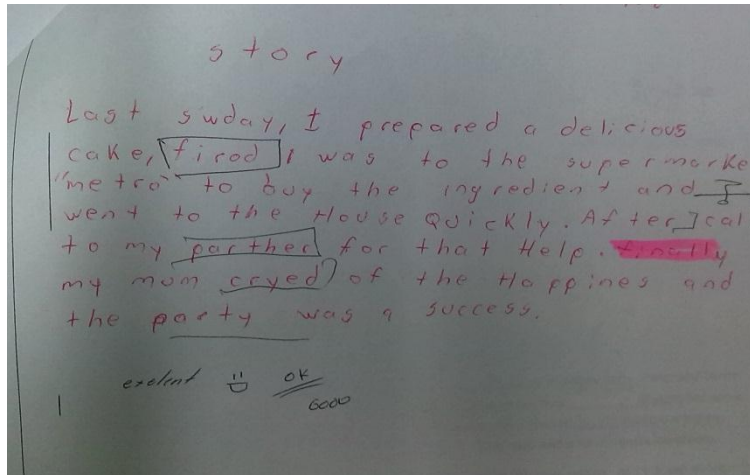 story
Last sunday, I prepared a delicious
cake, firod I was to the supermarke
"metro" to buy the ingredient and I
went to the House Quickly. After I cal
to my parther for that Help. finally
my mum cryed of the Happines and
the party was a success.
exelent OK
6000